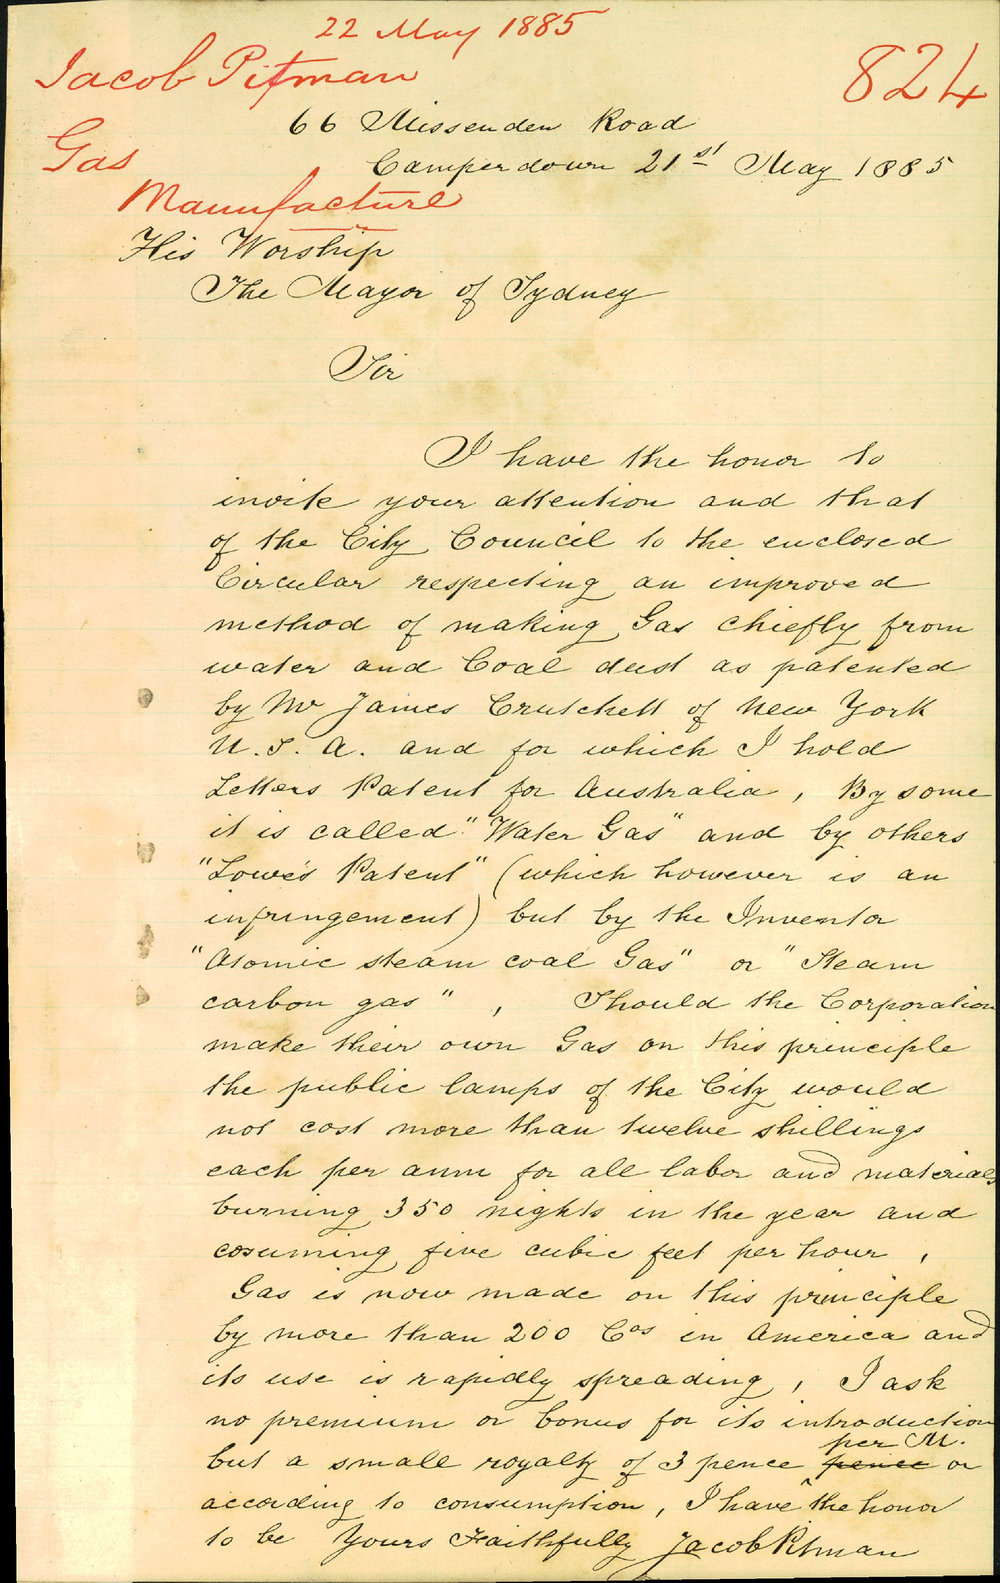 22 May 1885
Jacob Pitman
824
66 Missenden Road
Gas
Camperdown 21st May 1885
Manufacture
His Worship
The Mayor of Sydney
Sir
I have the honor to
invite your attention and that
of the City Council to the enclosed
Circular respecting an improved
method of making Gas chiefly from
water and Coal dust as patented
by Mr James Crutchett of New York
U.S.A. and for which I hold
Letters Patent for Australia, By some
it is called "Water Gas" and by others
"Lowe's Patent" (which however is an
infringement) but by the Inventor
"Atomic steam coal Gas" or "Steam
carbon gas", Should the Corporation
make their own Gas on this principle
the public lamps of the City would
not cost more than twelve shillings
each per ann for all labor and materials
burning 350 nights in the year and
cosuming five cubic feet per hour,
Gas is now made on this principle
by more than 200 Cos in America and
its use is rapidly spreading, I ask
no premium or bonus for its introduction
per M.
but a small royalty of 3 pence pence or
according to consumption, I have the honor
to be Yours Faithfully Jacob Pitman